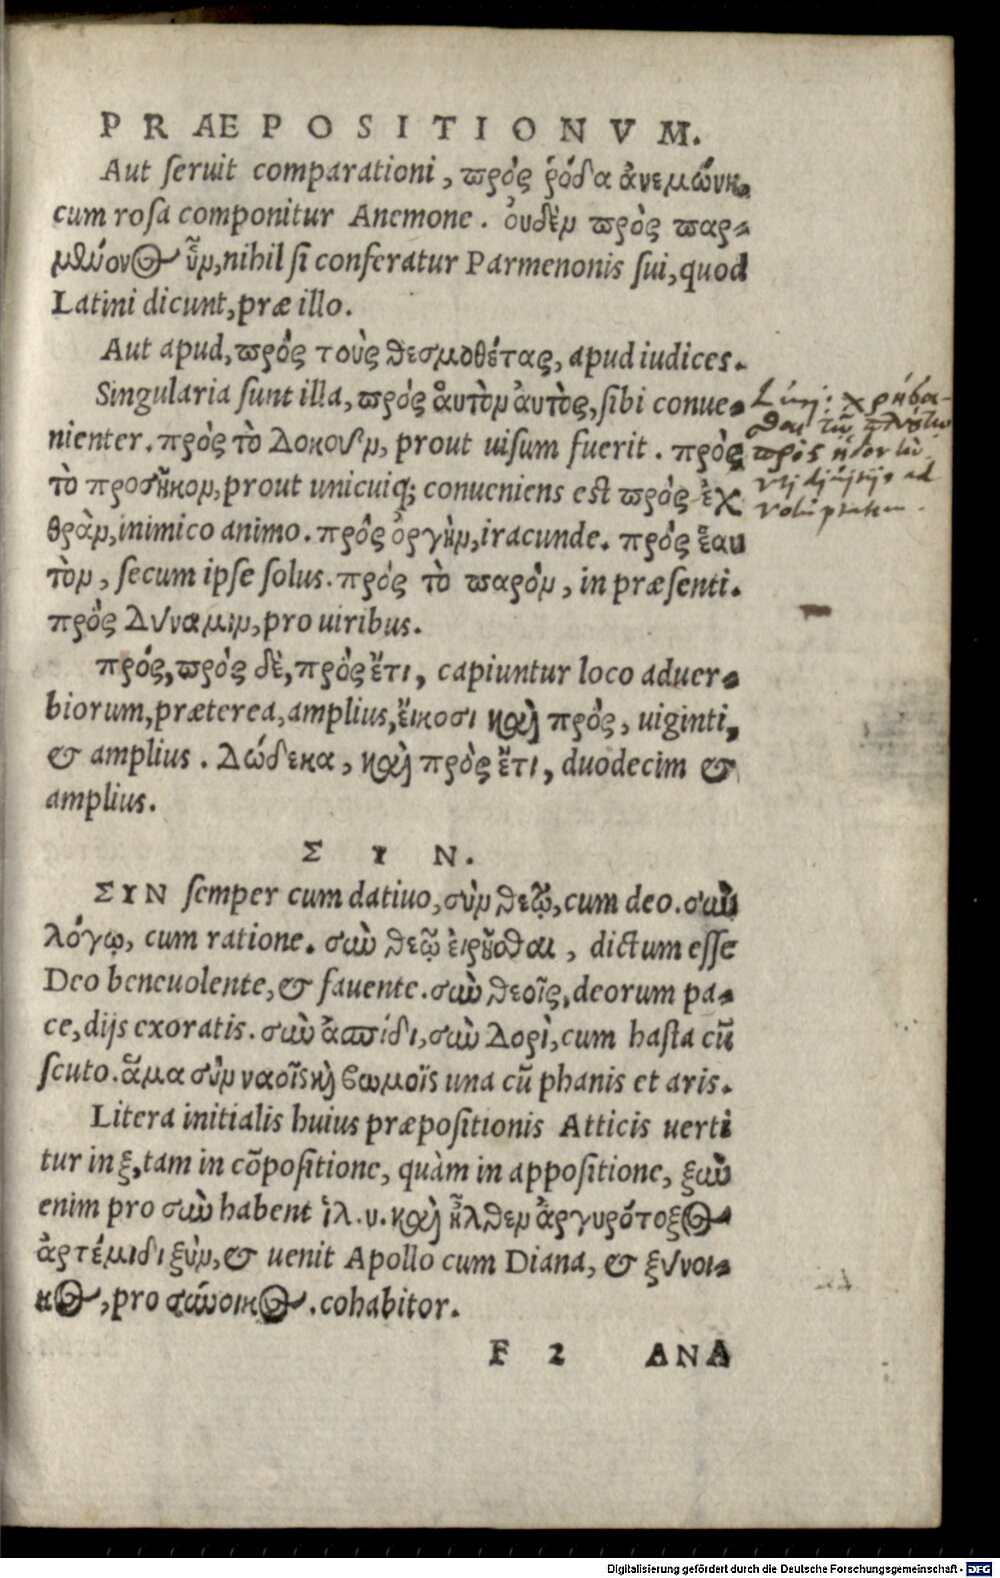 PRÆPOSITIONVM.
Aut seruit comparationi, πρὸς ῥόδα ἀνεμώνη,
cum rosa componitur Anemone. οὐδὲν πρὸς παρ-
μένονος ὗν, nihil si conferatur Parmenonis sui, quod
Latini dicunt, præ illo.
Aut apud, πρὸς τοὺς θεσμοθέτας, apud iudices.
Singularia sunt illa, πρὸς αὑτὸν αὐτὸς, sibi conue-
nienter. πρὸς τὸ Δοκοῦν, prout uisum fuerit. πρὸς
τὸ προσῆκον, prout unicuiq; conueniens est πρὸς ἐχ
θρὰν, inimico animo. πρὸς ὀργὴν, iracunde. πρὸς ἑαυ
τὸν, secum ipse solus. πρὸς τὸ παρὸν, in præsenti.
πρὸς Δύναμιν, pro uiribus.
πρός, πρὸς δὲ, πρὸς ἔτι, capiuntur loco aduer-
biorum, præterea, amplius, εἴκοσι καὶ πρὸς, uiginti,
& amplius. Δώδεκα, καὶ πρὸς ἔτι, duodecim &
amplius.
ΣΙΝ.
ΣΙΝ semper cum datiuo, σὺν θεῷ, cum deo. σὺν
λόγῳ, cum ratione. σὺν θεῷ εἰρῆσθαι, dictum esse
Deo beneuolente, & fauente. σὺν θεοῖς, deorum pa-
ce, dijs exoratis. σὺν ἀσπίδι, σὺν Δορὶ, cum hasta cū
scuto. ἅμα σὺν ναοῖς καὶ βωμοῖς una cū phanis et aris.
Litera initialis huius præpositionis Atticis uerti
tur in ξ, tam in cōpositione, quàm in appositione, ξὺν
enim pro σὺν habent ἰλ. υ. καὶ ἦλθεν ἀργυρότοξος
ἀρτέμιδι ξὺν, & uenit Apollo cum Diana, & ξύνοι-
κος, pro σύνοικος. cohabitor.
F 2 ANA
πρὸς ἡδονὴν
ad
Digitalisierung gefördert durch die Deutsche Forschungsgemeinschaft - DFG